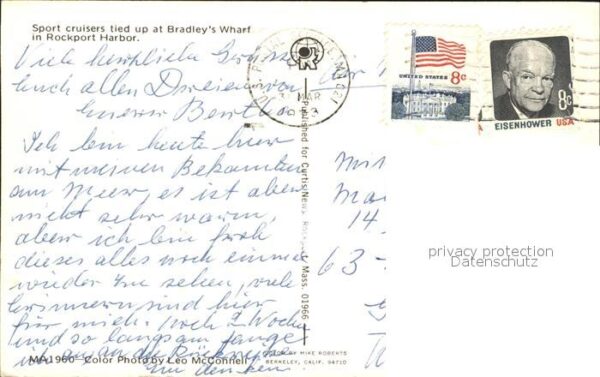 Sport cruisers tied up at Bradley's Wharf
in Rockport Harbor.
Viele herzliche Grüsse
Euch allen Dreien von
Eurer Bertha
Ich bin heute hier
mit meinen Bekannten
am Meer, es ist aber
nicht sehr warm,
aber ich bin froh
dieses alles noch einmal
wieder zu sehen, viele
Erinnerungen sind hier
für mich. Noch 2 Wochen
und so langsam fange
ich an an die
zu denken
MA1960—Color Photo by Leo McConnell
Published for Curtis News, Rockport, Mass. 01966
COLOR BY MIKE ROBERTS
BERKELEY, CALIF. 94710
MAR
UNITED STATES 8c
8c
EISENHOWER USA
14
63-
privacy protection
Datenschutz